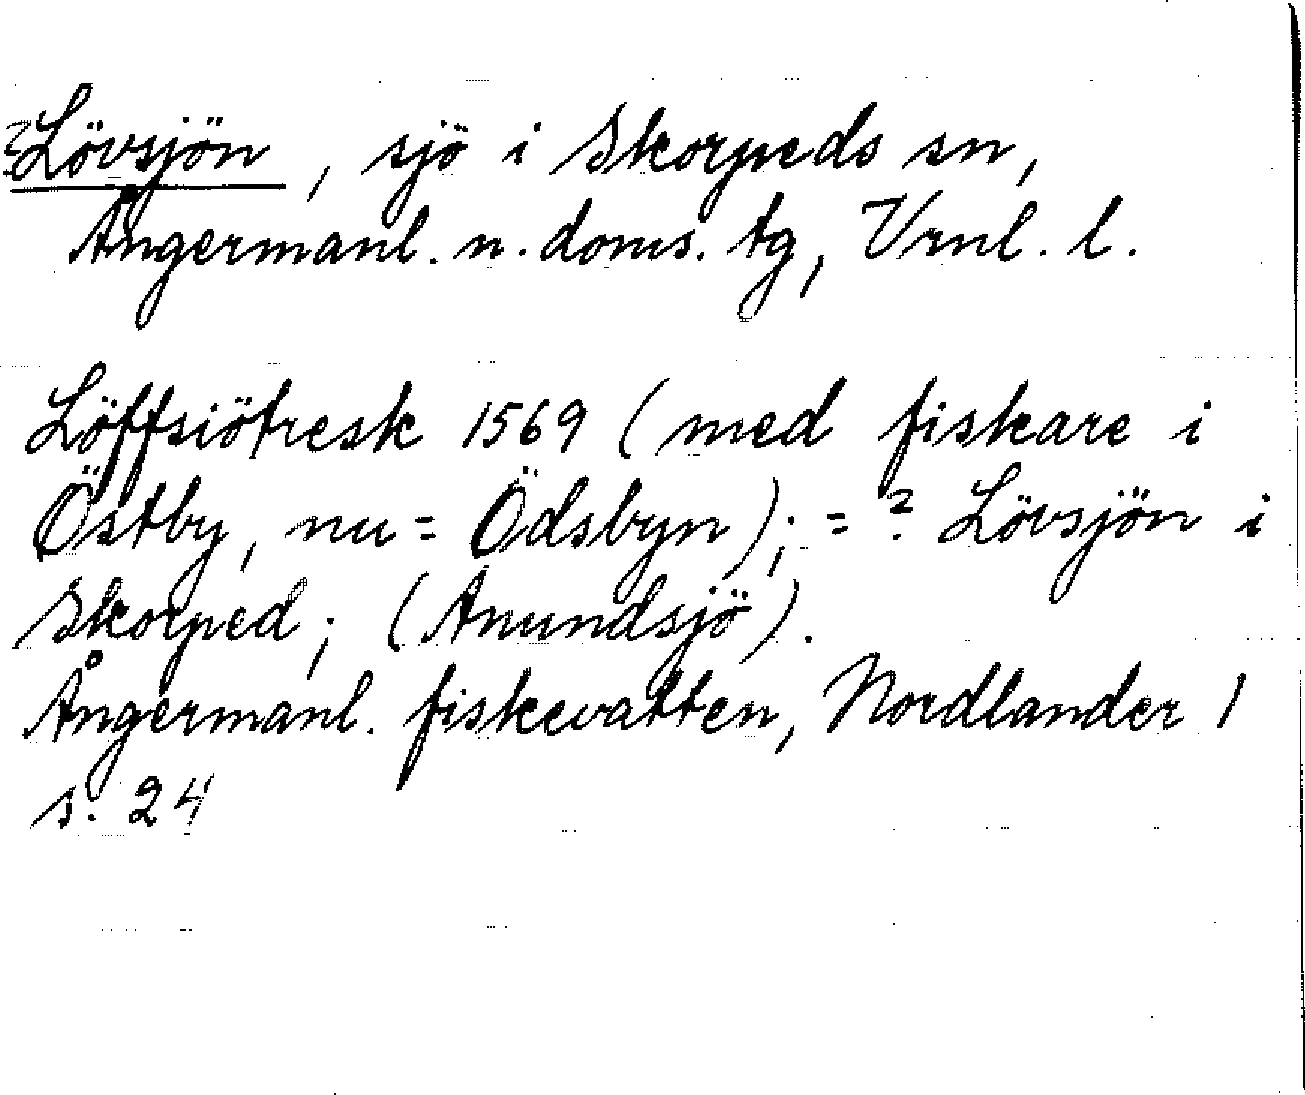 ? Lövsjön, sjö i Skorpeds sn,
Ångermanl. n. doms. tg, Vrnl. l.
Löffsiötresk 1569 (med fiskare i
Östby, nu = Ödsbyn); = ? Lövsjön i
Skorped; (Anundsjö).
Ångermanl. fiskevatten, Nordlander 1
s. 24